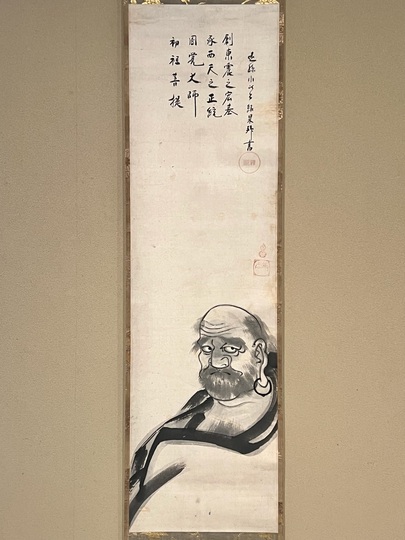 初祖菩提
圓覚大師
承西天之正統
創東震之宏基
遠孫
書